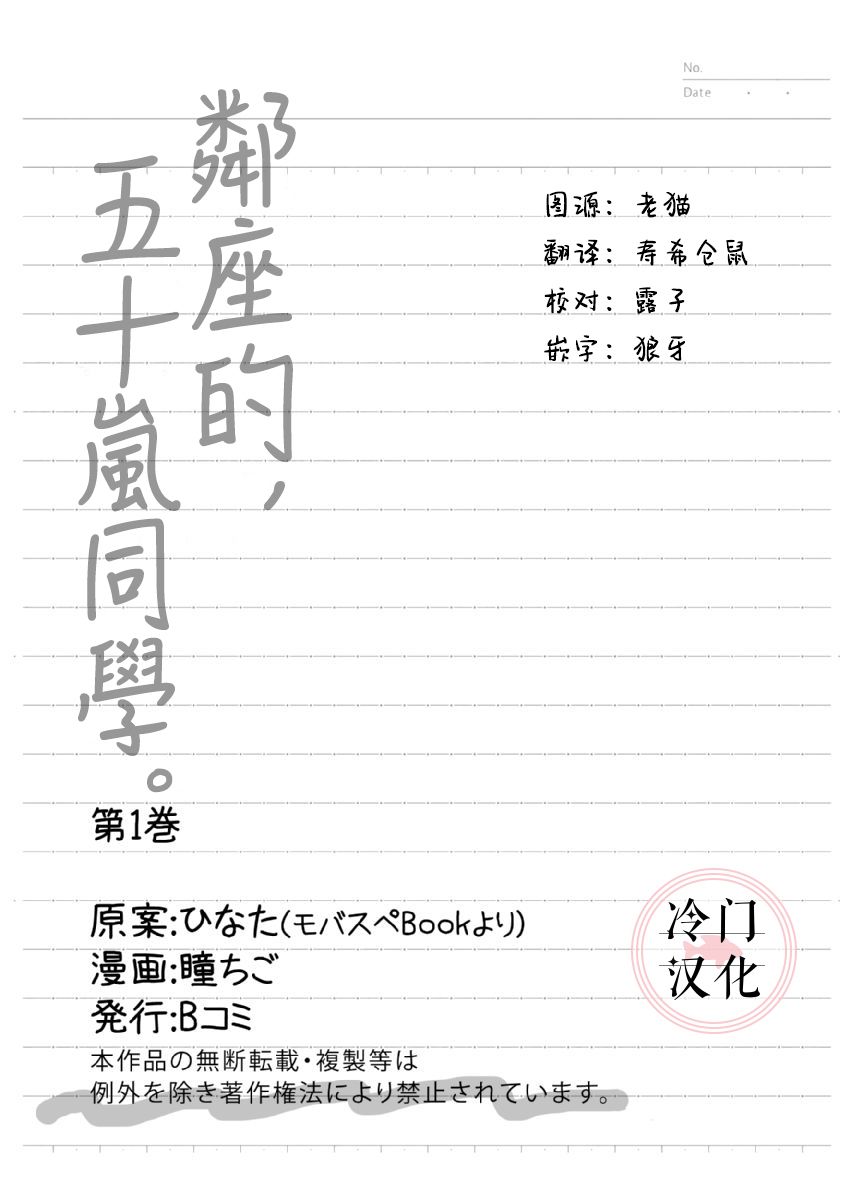 No.
Date
鄰座的，
五十嵐同學。
图源：老猫
翻译：寿希仓鼠
校对：露子
嵌字：狼牙
第1巻
原案:ひなた(モバスペBookより)
漫画:瞳ちご
発行:Bコミ
本作品の無断転載・複製等は
例外を除き著作権法により禁止されています。
冷门
汉化